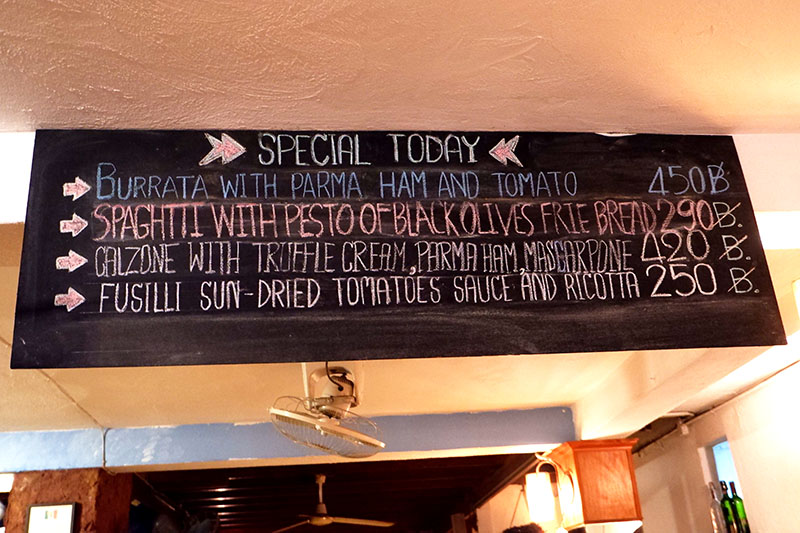 SPECIAL TODAY
BURRATA WITH PARMA HAM AND TOMATO 450฿
SPAGHTTI WITH PESTO OF BLACK OLIVES FRIE BREAD 290฿.
CALZONE WITH TRUFFLE CREAM, PARMA HAM, MASCARPONE 420฿.
FUSILLI SUN-DRIED TOMATOES SAUCE AND RICOTTA 250฿.